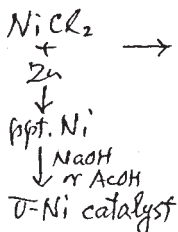 NiCl2
+
Zn
ppt. Ni
NaOH
or AcOH
U-Ni catalyst